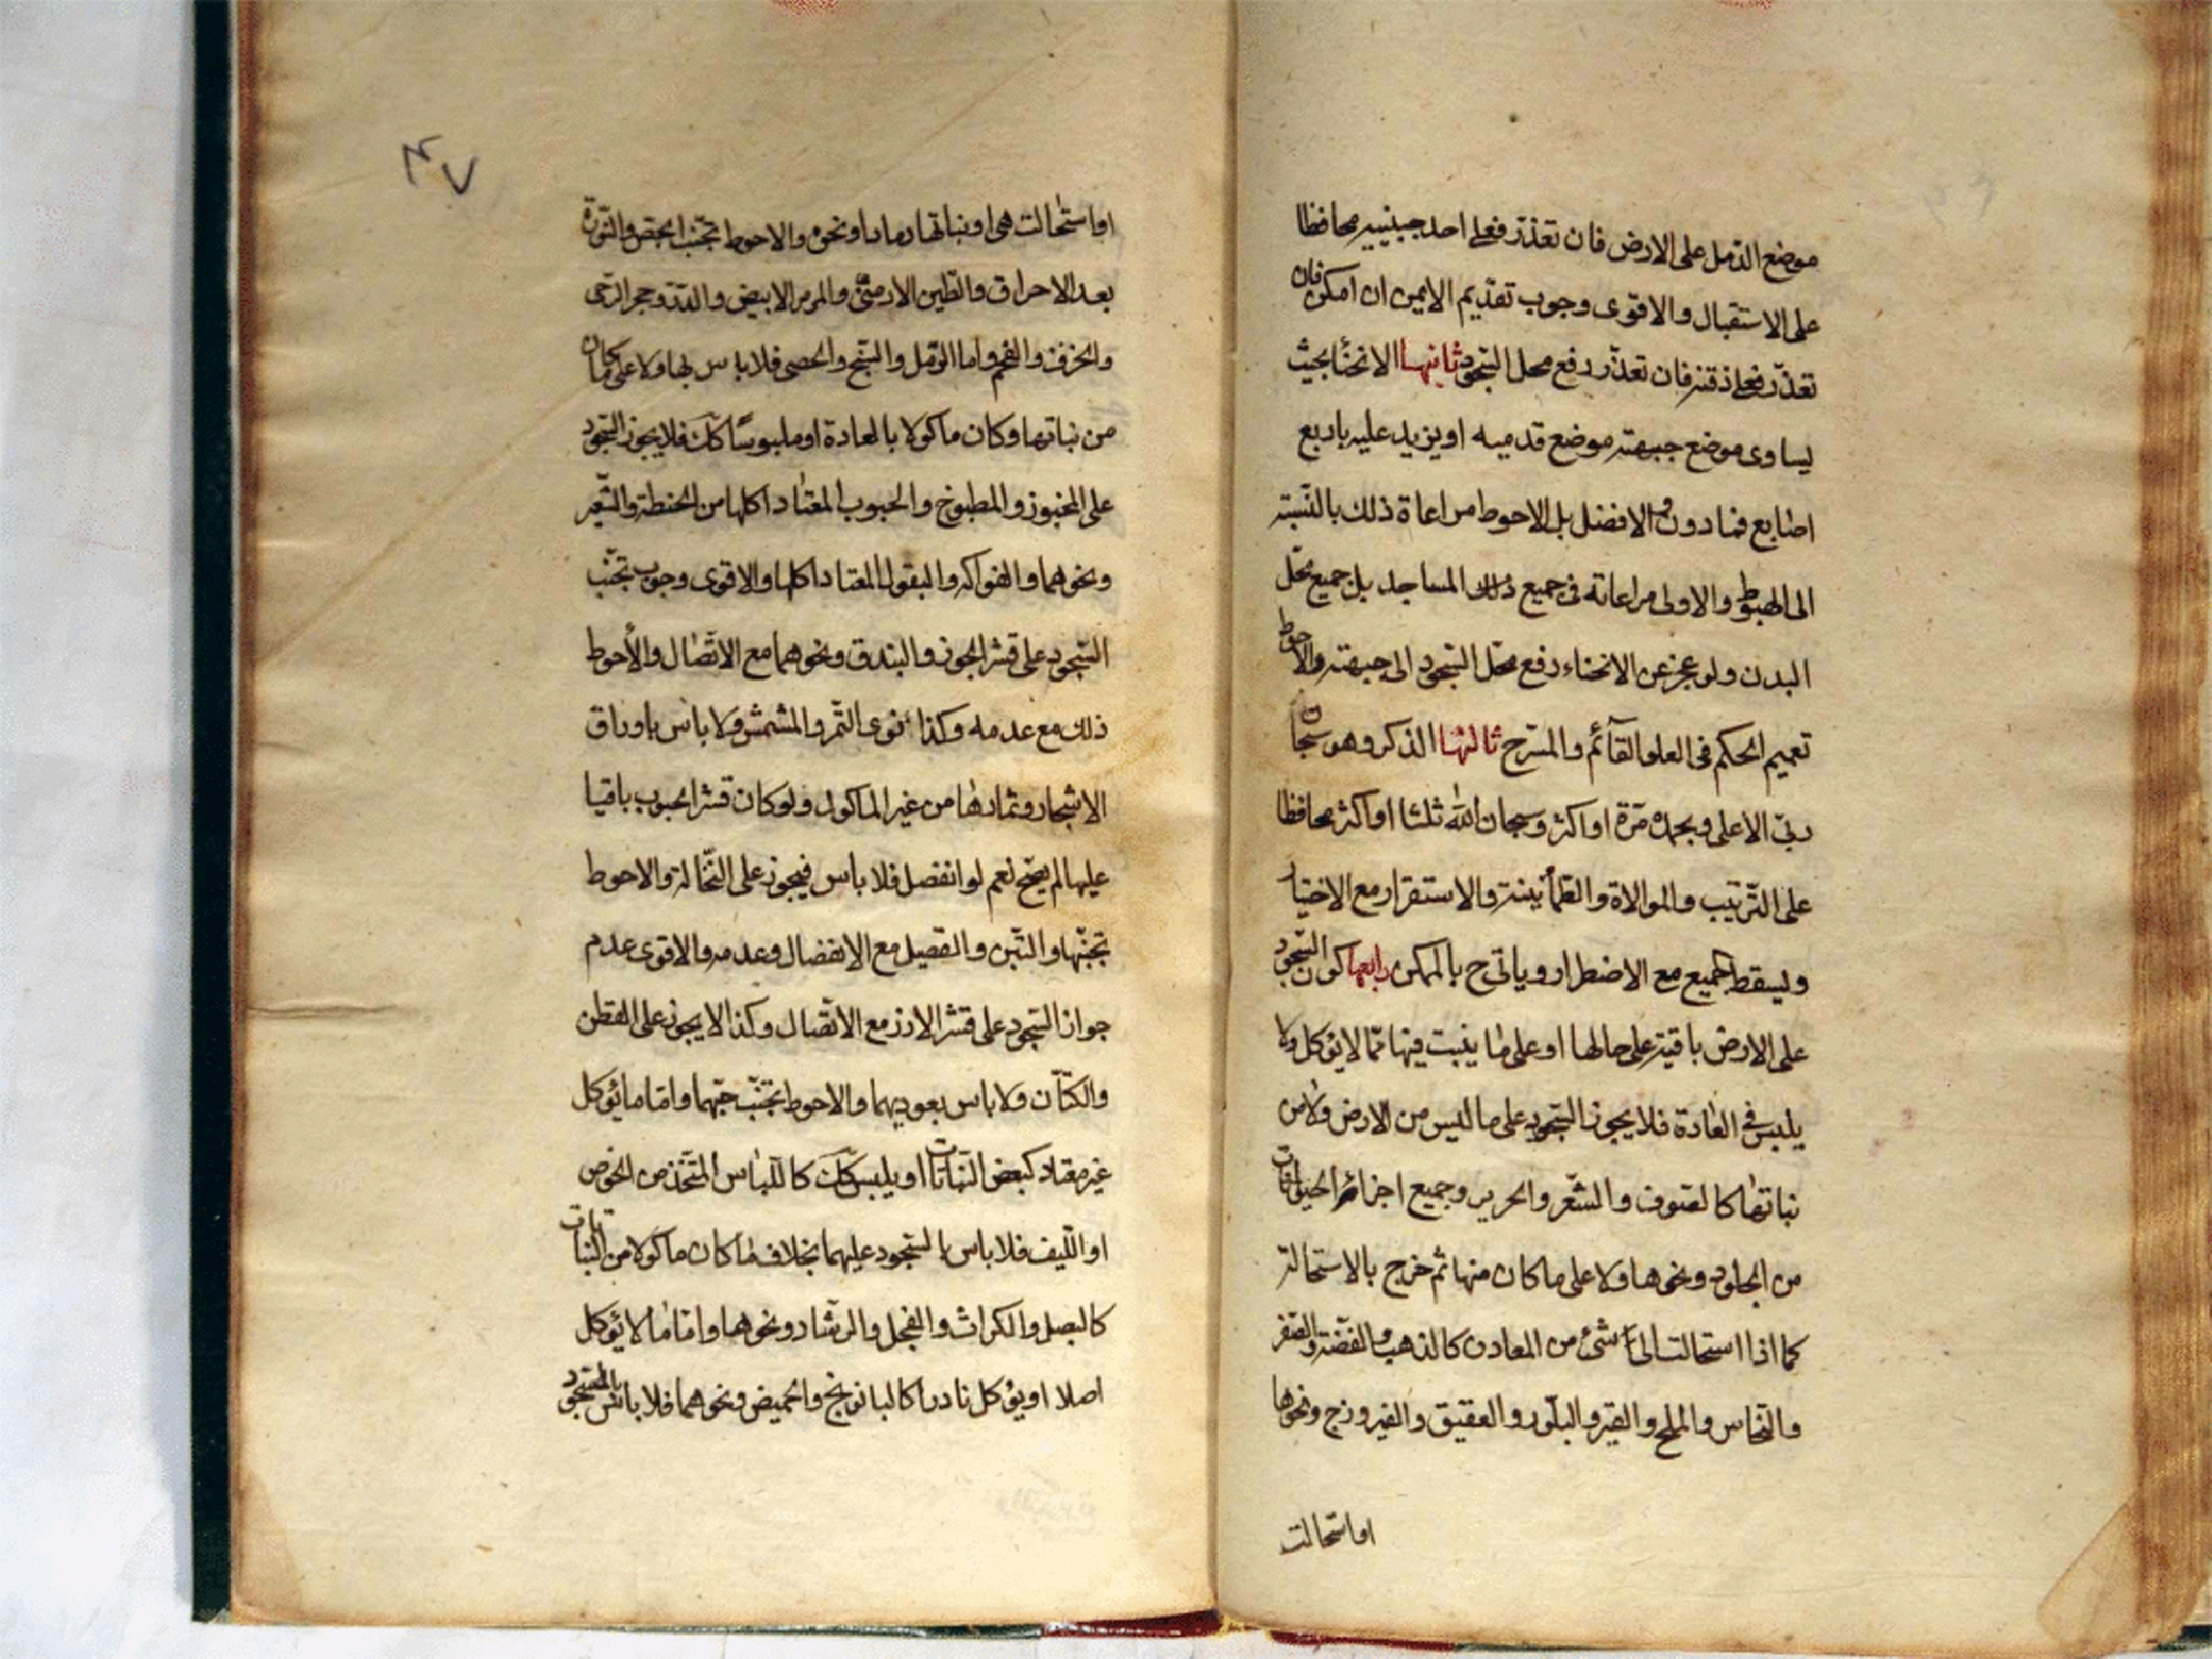 موضع الدمل على الارض فان تعذر فعلى احد جبينيه محافظا
على الاستقبال والاقوى وجوب تقديم الايمن ان امكن فان
تعذر فعلى ذقنه فان تعذر رفع محل السجود ثانيها الانحناء بحيث
يساوى موضع جبهته موضع قدميه او يزيد عليه باربع
اصابع فما دون والافضل بل الاحوط مراعاة ذلك بالنسبة
الى الهبوط والاولى مراعاته فى جميع ذلك المساجد بل جميع محل
البدن ولو عجز عن الانحناء رفع محل السجود الى جبهته والاحوط
تعميم الحكم فى العلو القآئم والمسرح ثالثها الذكر وهو سبحان
ربى الاعلى وبحمده مرة او اكثر وسبحان الله ثلثا او اكثر محافظا
على الترتيب والموالاة والطمأنينة والاستقرار مع الاختيار
ويسقط الجميع مع الاضطرار وياتى ح بالممكن رابعها كون السجود
على الارض باقية على حالها او على ما ينبت فيها مما لا يؤكل ولا
يلبس فى العادة فلا يجوز السجود على ما ليس من الارض ولا من
نباتها كالصوف والشعر والحرير وجميع اجزائه الحيوانات
من الجلود ونحوها ولا على ما كان منها ثم خرج بالاستحالة
كما اذا استحالت الى شئ من المعادن كالذهب والفضة والصفر
والنحاس والملح والقير والبلور والعقيق والفيروزج ونحوها
او استحالت
٤٧
او استحالت هى او نباتها رمادا ونحوه والاحوط تجنب الجص والنورة
بعد الاحراق والطين الارمنى والمرمر الابيض والدر وحجر الرحى
والخزف والفحم واما الرمل والسبخ والحصى فلا باس بها ولا على ما كان
من نباتها وكان ماكولا بالعادة او ملبوسا كك فلا يجوز السجود
على المخبوز والمطبوخ والحبوب المعتاد اكلها من الحنطة والشعير
ونحوهما والفواكه والبقول المعتاد اكلها والاقوى وجوب تجنب
السجود على قشر الجوز والبندق ونحوهما مع الاتصال والأحوط
ذلك مع عدمه وكذا نوى التمر والمشمش ولا باس باوراق
الاشجار وثمارها من غير الماكول ولو كان قشر الحبوب باقيا
عليها لم يصح نعم لو انفصل فلا باس فيجوز على النخالة والاحوط
تجنبها والتبن والقصيل مع الانفصال وعدمه والاقوى عدم
جواز السجود على قشر الارز مع الاتصال وكذا لا يجوز على القطن
والكتان ولا باس بعوديهما والاحوط تجنب حبهما واما ما يؤكل
غير معتاد كبعض النباتات او يلبس كك كاللباس المتخذ من الخوص
او الليف فلا باس بالسجود عليهما بخلاف ما كان ماكولا من النباتات
كالبصل والكراث والفجل والرشاد ونحوها واما ما لا يؤكل
اصلا او يؤكل نادرا كالبابونج والحميض ونحوهما فلا باس بالسجود